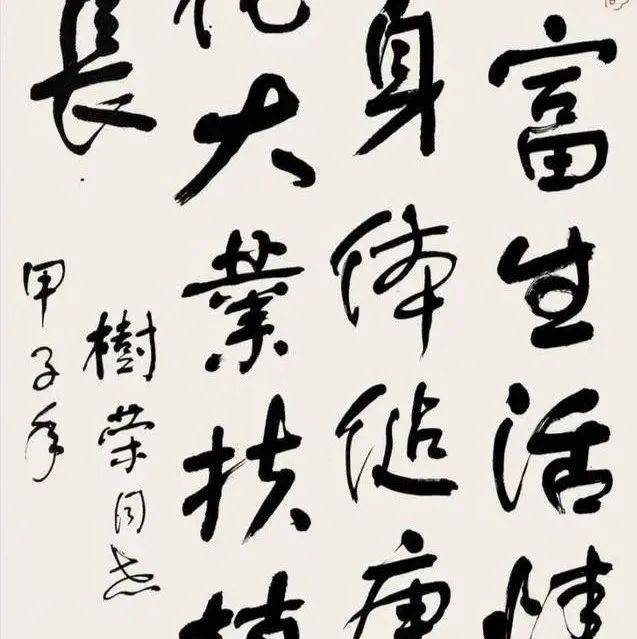 富生活情
身体健康
大業扶
長
樹荣同志
甲子年